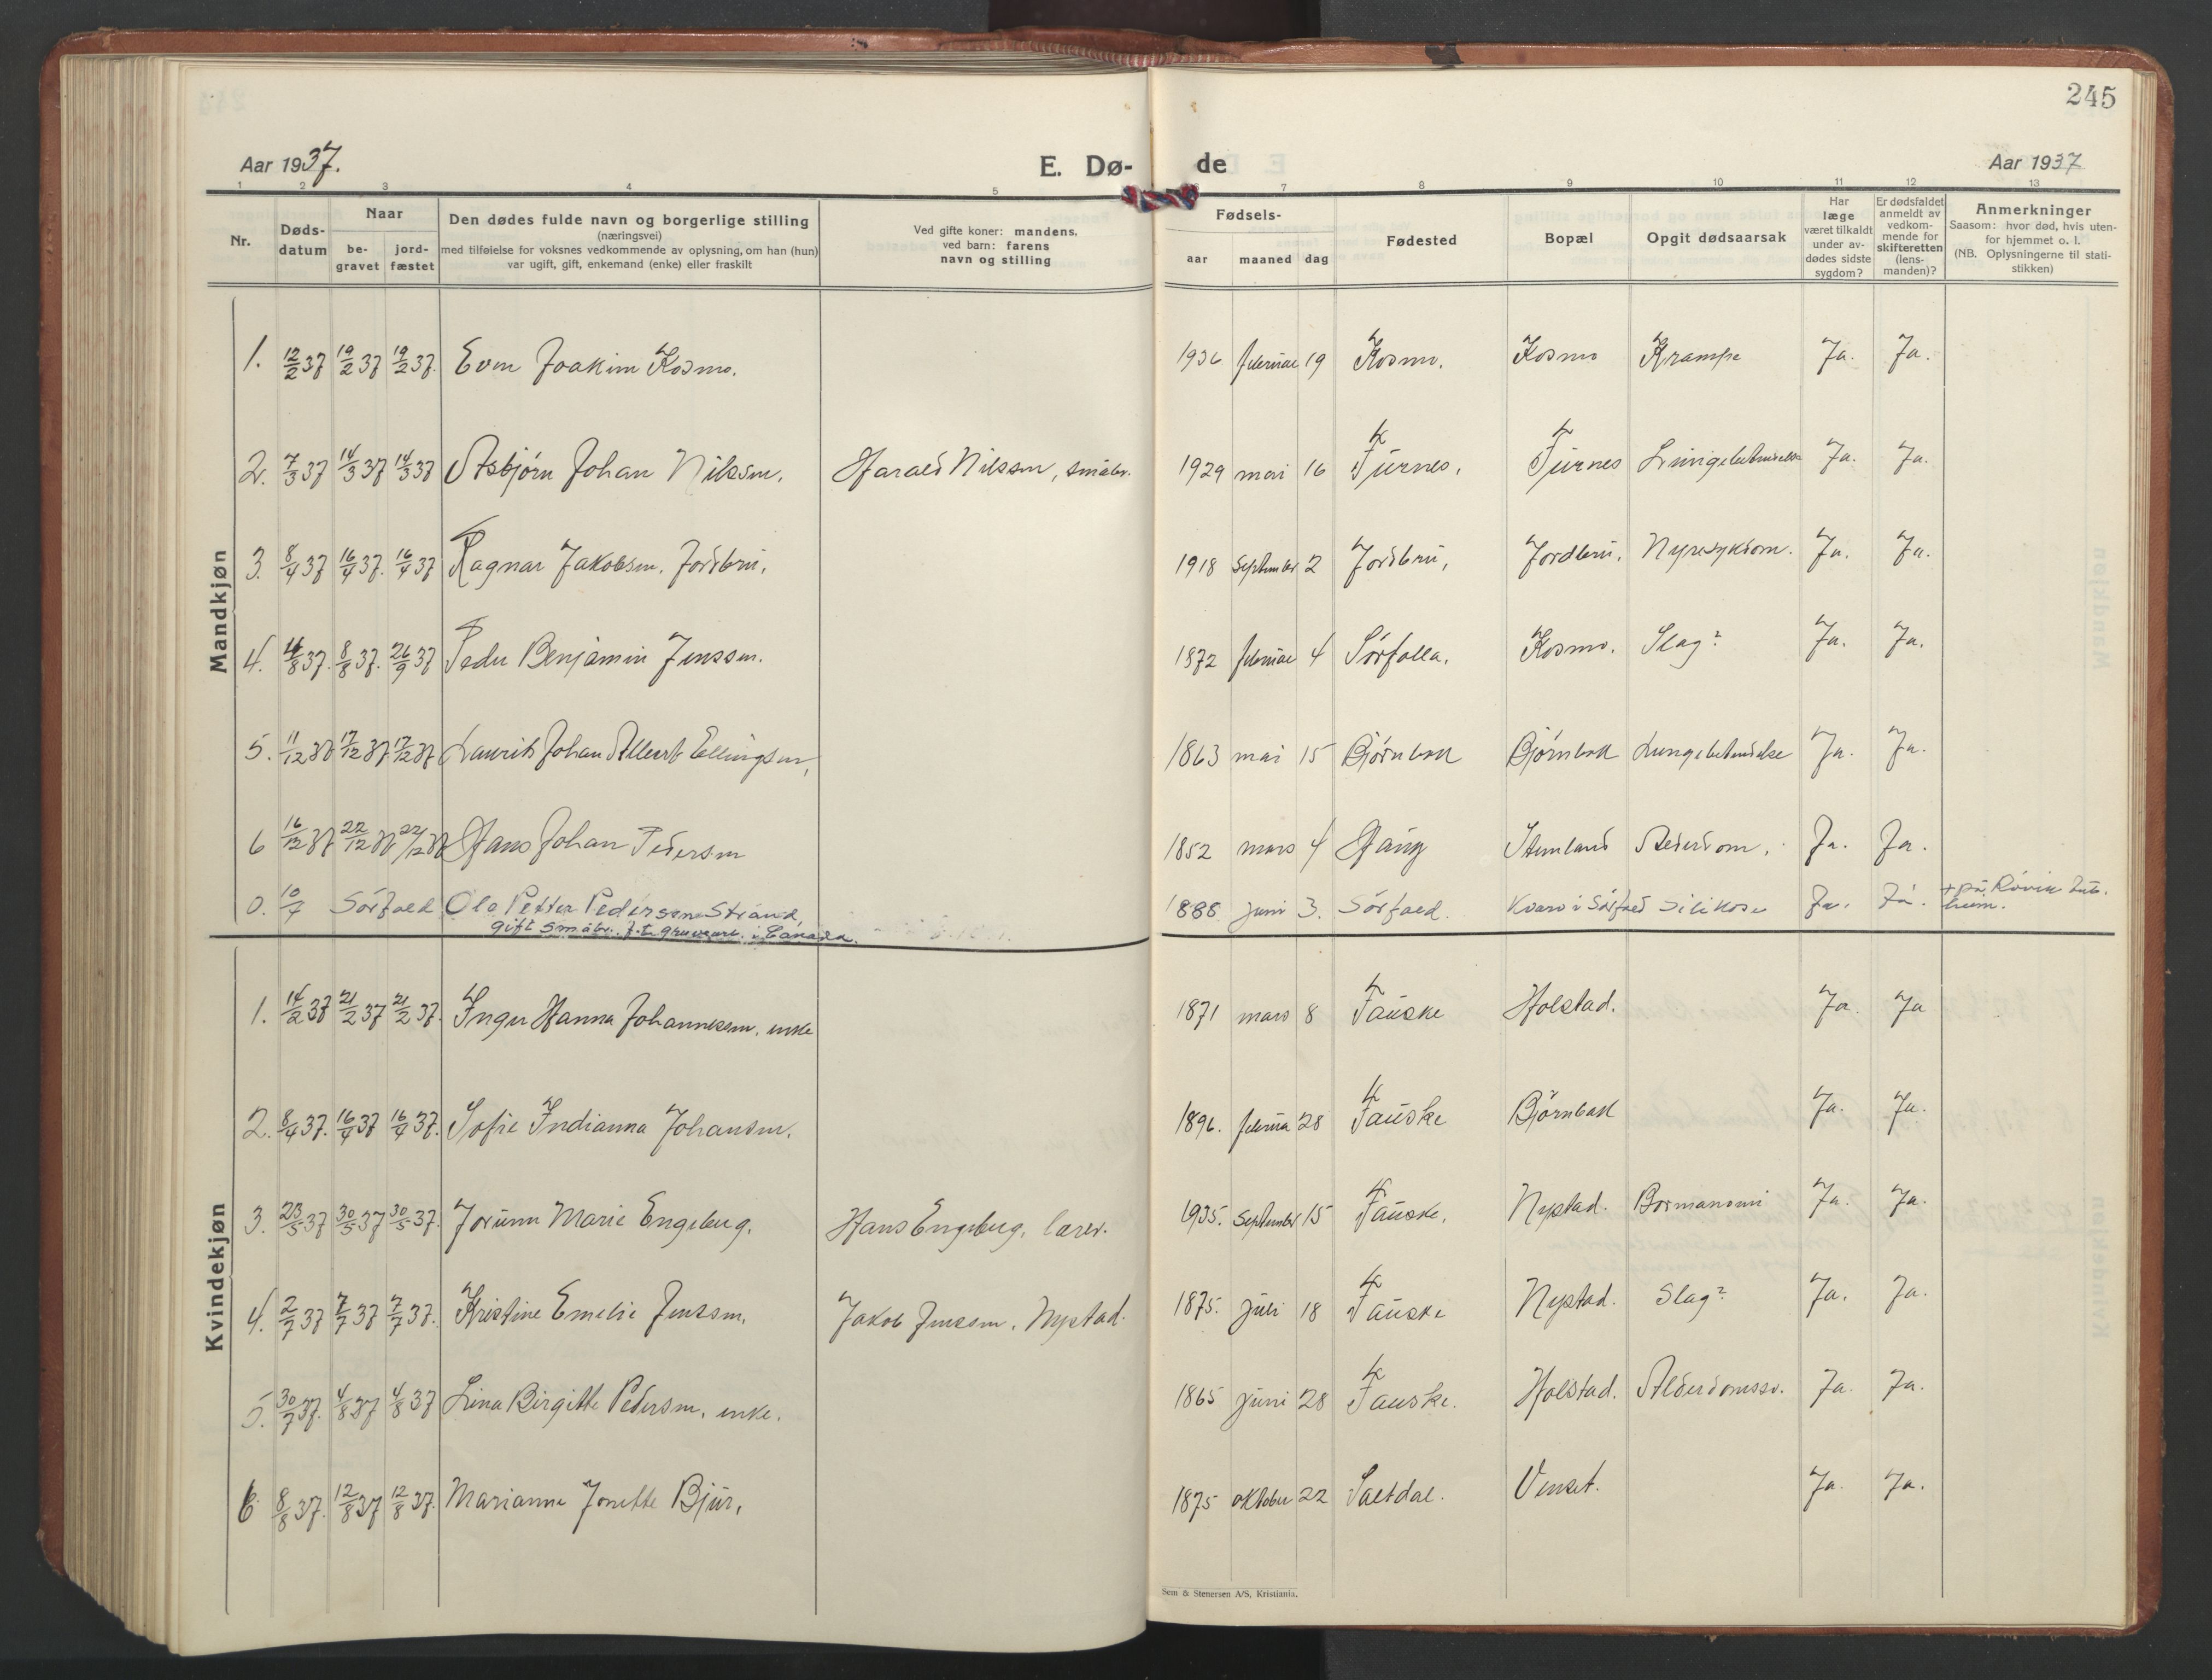 245
Aar 1937. E. Dø- de Aar 1937
1 2 3 4 5 7 8 9 10 11 12 13
Nr. Døds-datum Naar be-gravet jord-fæstet Den dødes fulde navn og borgerlige stilling (næringsvei) med tilføielse for voksnes vedkommende av oplysning, om han (hun) var ugift, gift, enkemand (enke) eller fraskilt Ved gifte koner: mandens, ved barn: farens navn og stilling Fødsels- aar maaned dag Fødested Bopæl Opgit dødsaarsak Har læge været tilkaldt under av-dødes sidste sygdom? Er dødsfaldet anmeldt av vedkom-mende for skifteretten (lens-manden)? Anmerkninger Saasom: hvor død, hvis uten-for hjemmet o. l. (NB. Oplysningerne til stati-stikken)
Mandkjøn
1. 12/2 37 19/2 37 19/2 37. Even Joakim Kosmo. 1936 februar 19 Kosmo. Kosmo Krampe Ja. Ja.
2. 7/3 37 14/3 37 14/3 37 Asbjørn Johan Nilssen. Harald Nilssen, småbr. 1929 mai 16 Türnes. Türnes Lungebetendelse Ja. Ja.
3. 8/4 37 16/4 37. 16/4 37 Ragnar Jakobsen. Jordbru. 1918 September 2 Jordbru, Jordbru. Nyresykdom. Ja. Ja.
4. 4/8 37. 8/8 37. 26/9 37 Peder Benjamin Jenssen. 1872 februar 4 Sörfolla. Kosmo. Slag? Ja. Ja.
5. 11/12 37 17/12 37. 17/12 37 Laurits Johan Albert Ellingsen, 1863 mai 15 Björnbak Björnbak Lungebetendelse Ja. Ja.
6 16/12 37 22/12 37 22/12 37 Hans Johan Pedersen 1852 mars 4 Haug Stemland Alderdom. Ja. Ja.
0. 10/7 Sörfold Ola Petter Pedersen Strand, 1888 juni 3. Sörfold. Kvarv i Sörfold Silikose Ja. Ja. + på Rövik tub.
gift småbr. f.t. gruvearb. i Canada. heim.
Kvindekjøn
1. 14/2 37 21/2 37 21/2 37. Inger Hanna Johannessen, enke 1871 mars 8 Fauske Holstad. Ja. Ja
2. 8/4 37. 16/4 37 16/4 37. Sofie Indianna Johansen. 1896. februa 28 Fauske Björnbak Ja. Ja.
3. 23/5 37 30/5 37 30/5 37. Jorunn Marie Engeberg. Hans Engeberg, lærer. 1935. September 15 Fauske. Nystad. Ja. Ja.
4. 2/7 37 7/7 37 7/7 37. Kristine Emelie Jenssen. Jakob Jenssen. Nystad. 1875. juli 18 Fauske Nystad. Slag? Ja. Ja.
5. 30/7 37. 4/8 37 4/8 37 Lina Birgitte Pedersen, enke. 1865 juni 28 Fauske. Holstad. Alderdomssv. Ja. Ja.
6 8/8 37. 12/8 37 12/8 37. Marianne Jonette Bjür, 1875 oktober 22 Saltdal. Venset. Ja. Ja.
Sem & Stenersen A/S, Kristiania.